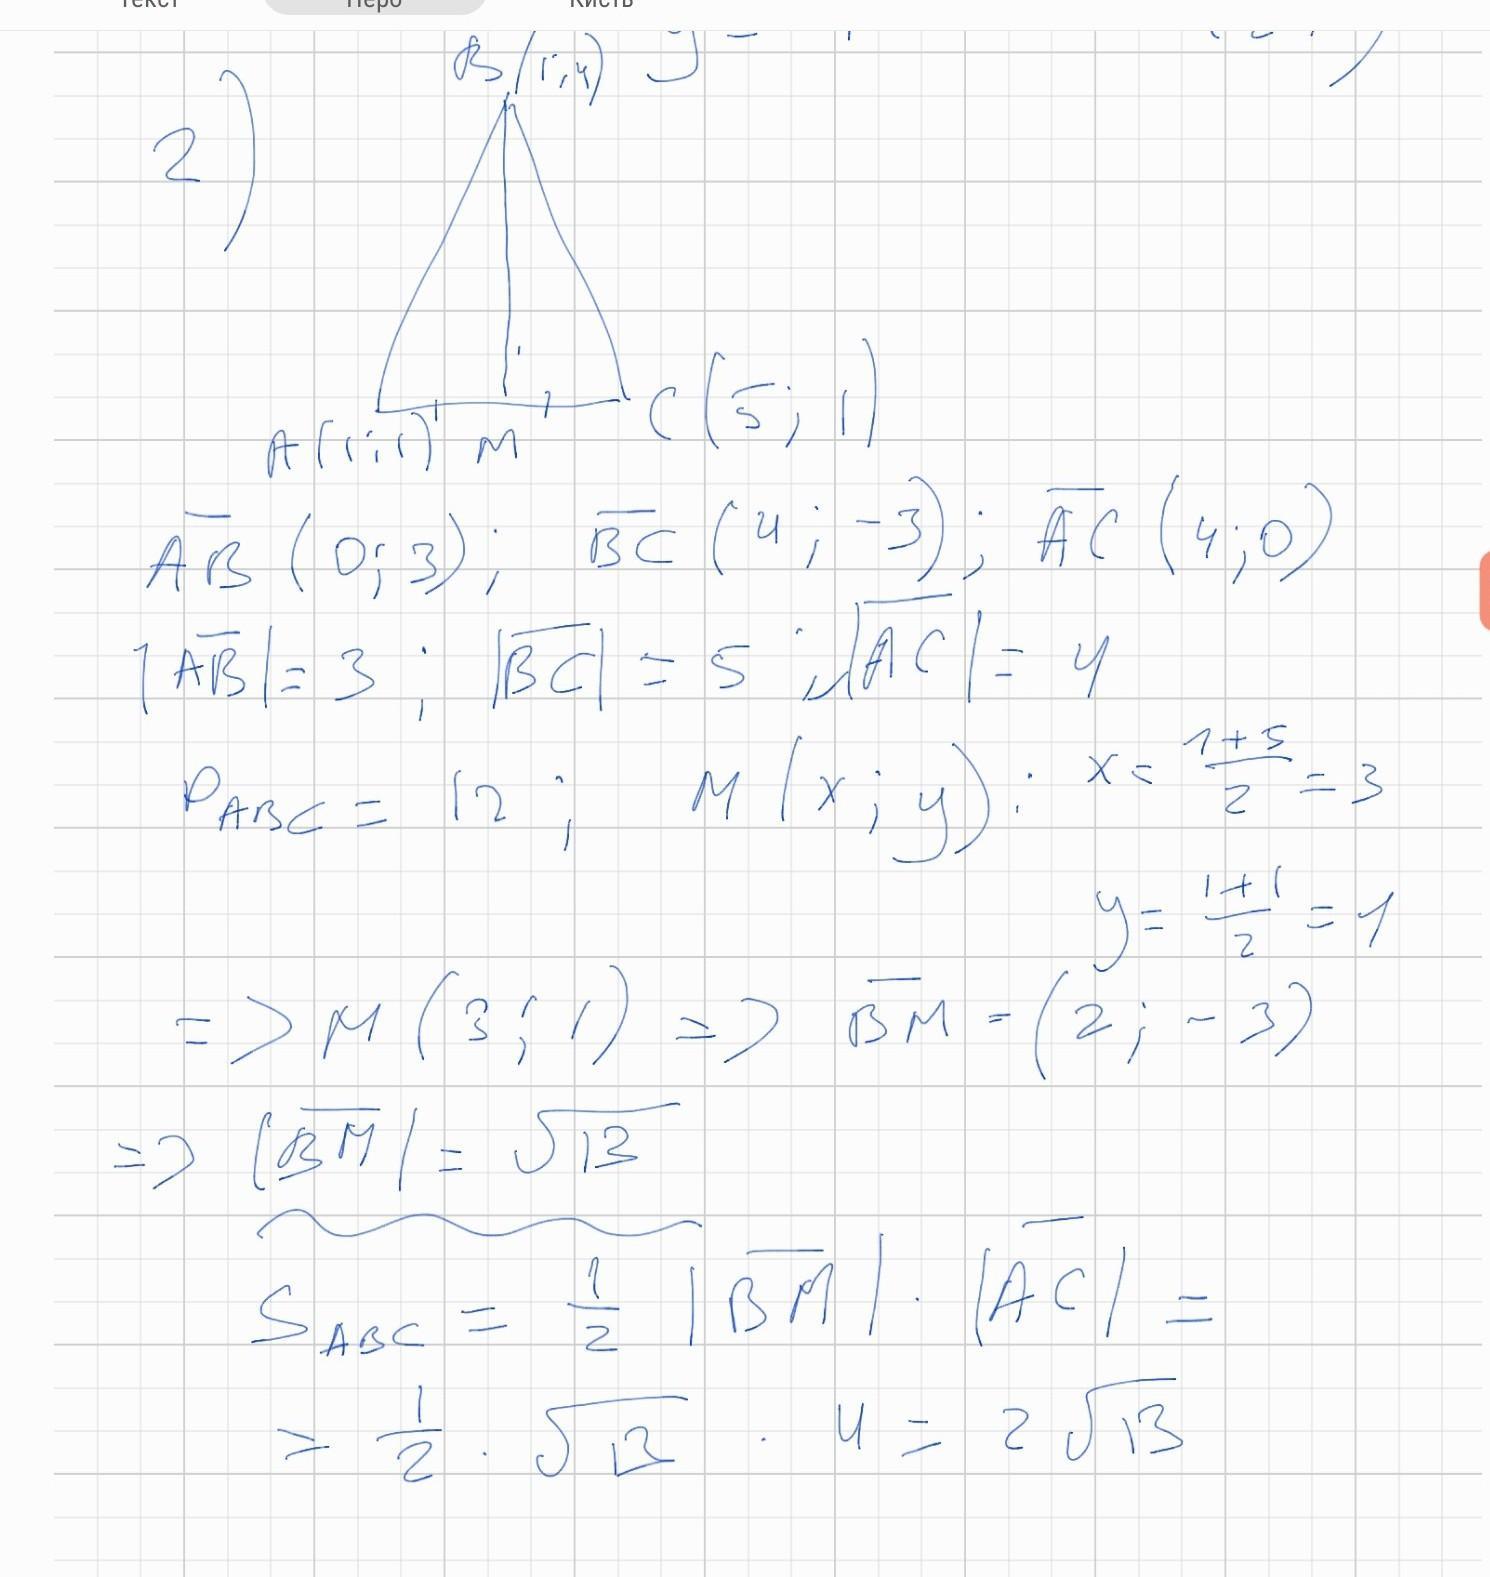 Текст Перо Кисть
B(1;4) y =
2)
C(5; 1)
A(1;1) M
AB̅ (0; 3); B̅C̅ (4; -3); A̅C̅ (4;0)
|AB̅| = 3; |B̅C̅| = 5; |A̅C̅| = 4
P_ABC = 12; M(x; y): x = \frac{1+5}{2} = 3
y = \frac{1+1}{2} = 1
=> M(3; 1) => B̅M̅ = (2; -3)
=> |B̅M̅| = √13
S_ABC = \frac{1}{2} |B̅M̅| · |A̅C̅| =
= \frac{1}{2} · √13 · 4 = 2√13